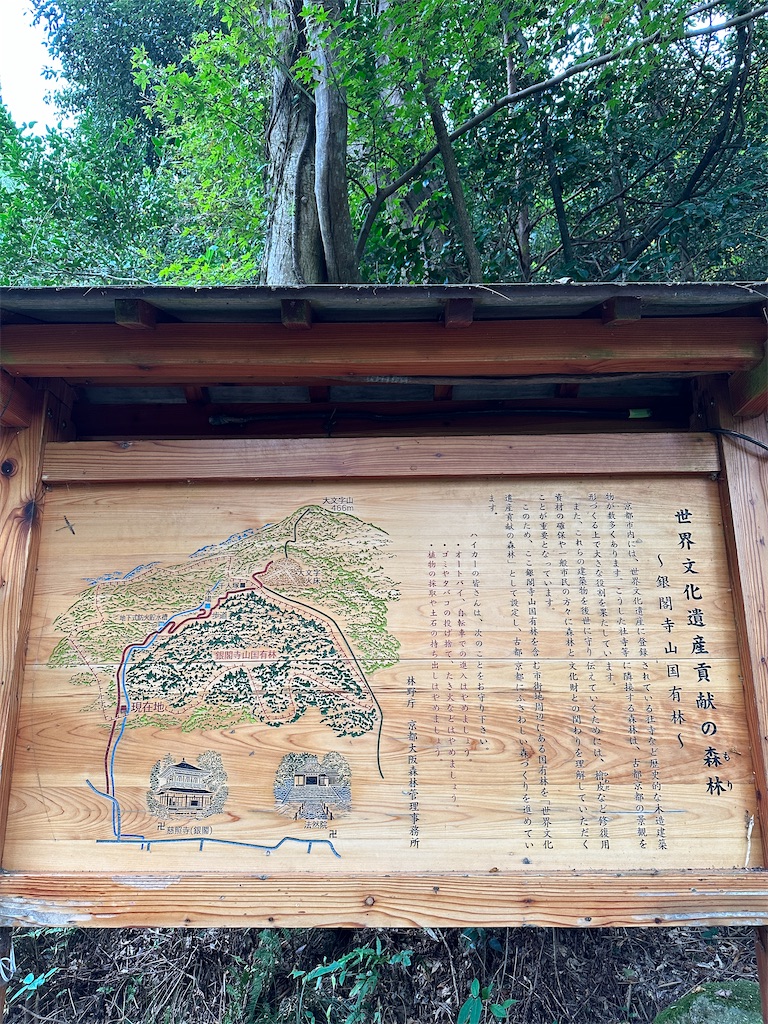 世界文化遺産貢献の森林
もり
〜銀閣寺山国有林〜
京都市内には、世界文化遺産に登録されている社寺など歴史的な木造建築
物が数多くあります。こうした社寺等に隣接する森林は、古都京都の景観を
形づくる上で大きな役割を果たしています。
また、これらの建築物を後世に守り伝えていくためには、檜皮など修復用
資材の確保や一般市民の方々に森林と文化財との関わりを理解していただく
ことが重要となっています。
このため、ここ銀閣寺山国有林を含む市街地周辺にある国有林を「世界文化
遺産貢献の森林」として設定し、古都京都にふさわしい森づくりを進めてい
ます。
ハイカーの皆さんは、次のことをお守り下さい。
・オートバイ、自転車での進入はやめましょう。
・ゴミやタバコの投げ捨て、たき火などはやめましょう。
・植物の採取や土石の持ち出しはやめましょう。
林野庁 京都大阪森林管理事務所
大文字山
466m
大文字
火床
地下式防火貯水槽
銀閣寺山国有林
現在地
卍 慈照寺(銀閣)
法然院 卍